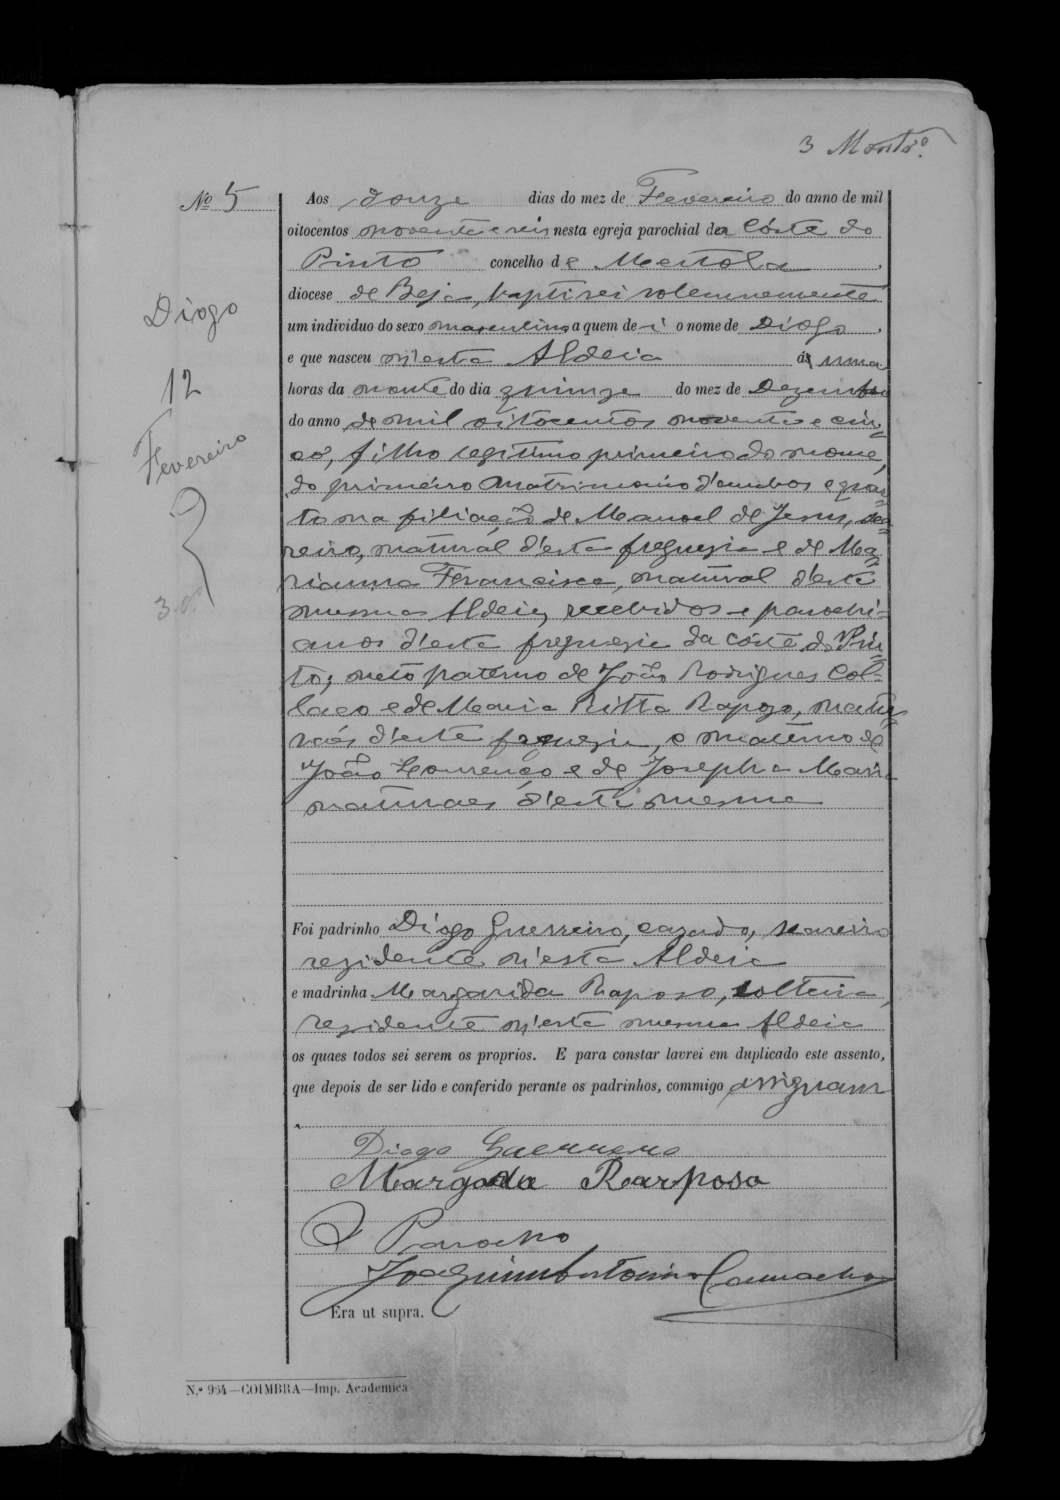 3 Montrº.
Nº 5
Diogo
12
Fevereiro
Aos douze dias do mez de Fevereiro do anno de mil
oitocentos noventa e seis nesta egreja parochial da Côrte do
Pinto concelho de Mertola,
diocese de Beja, baptisei solemnemente
um individuo do sexo masculino a quem dei o nome de Diogo,
e que nasceu n'esta Aldeia á uma
horas da noute do dia quinze do mez de Dezembro
do anno de mil oitocentos noventa e cin=
co, filho legitimo primeiro do nome,
do primeiro matrimonio d'ambos e quar=
to na filiação de Manoel de Jesus, sea=
reiro, natural d'esta freguezia e de Ma=
rianna Francisca, natural d'esta
mesma Aldeia, recebidos e parochi=
anos d'esta freguezia da Côrte do Pin=
to; neto paterno de João Rodrigues Col=
laço e de Maria Ritta Rapozo, natu=
raes d'esta freguezia, e materno de
João Lourenço e de Josepha Maria
naturaes d'esta mesma
Foi padrinho Diogo Guerreiro, cazado, seareiro
rezidente n'esta Aldeia
e madrinha Margarida Raposo, solteira,
rezidente n'esta mesma Aldeia
os quaes todos sei serem os proprios. E para constar lavrei em duplicado este assento,
que depois de ser lido e conferido perante os padrinhos, commigo assignam
Diogo Guerreiro
Margarida Rarposo
O Parocho
Joaquim Antonio Camacho
Era ut supra.
N.º 954—COIMBRA—Imp. Academica